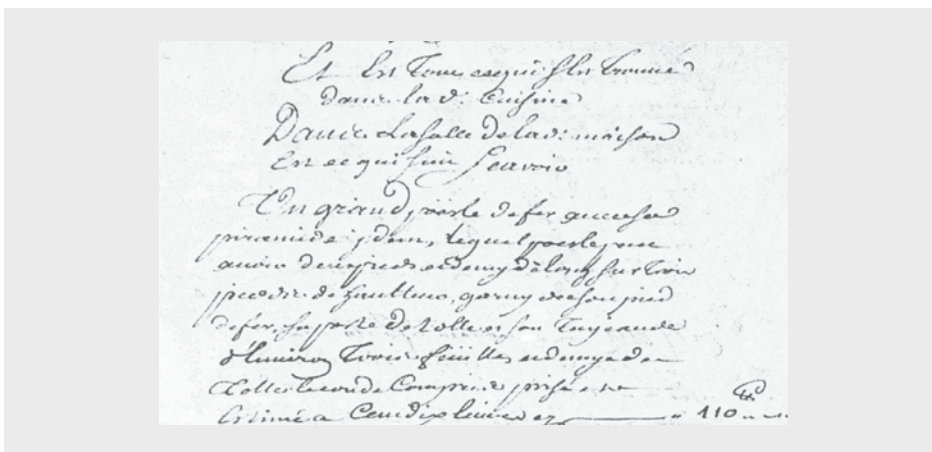 Et Est Tout cequi sEst trouvé
dans la d: Cuisine
Dans La salle de la d: maison
Est ce qui suit Scavoir
Un grand poesle de fer avec sa
piramide idem, lequel poesle peut
avoir deux pieds et demy de long sur trois
pieds de haulteur, garny de son pied
de fer, sa porte de tolle et son tuyau de
d'Environ Trois feuilles et demye de
Tolle le coude Compris prisé et
Estimé a Cent dix livres cy 110